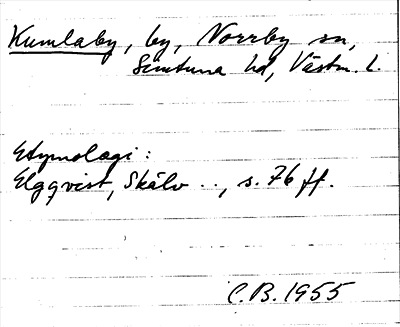 Kumlaby, by, Norrby sn,
Simtuna hd, Västm. l.
Etymologi:
Elgqvist, Skälv .., s. 76 ff.
C.B. 1955